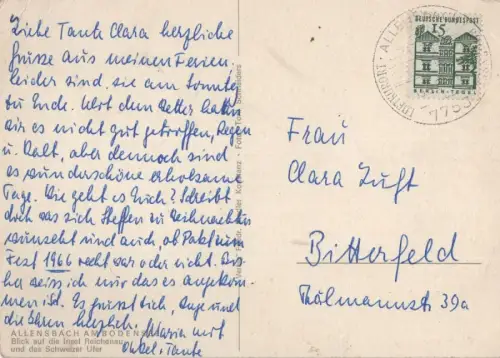 Liebe Tante Clara herzliche
Grüsse aus meinen Ferien.
Leider sind sie am Sonntag
zu Ende. Mit dem Wetter hatten
wir es nicht gut getroffen, Regen
u. Kalt, aber dennoch sind
es wunderschöne erholsame
Tage. Wie geht es Euch? Schreibt
doch was sich Steffen zu Weihnachten
wünscht und auch, ob Paket zum
Fest 1966 recht war oder nicht. Bis-
her weiss ich nur das es angekom-
men ist. Es grüsst Dich, und
die Ihren herzlich, Maria mit
Onkel, Tante
ALLENSBACH AM BODENSEE
Blick auf die Insel Reichenau
und das Schweizer Ufer
DEUTSCHE BUNDESPOST
15
BERLIN-TEGEL
ALLENSBACH
Frau
Clara Zuft
Bitterfeld
Thälmannstr. 39a